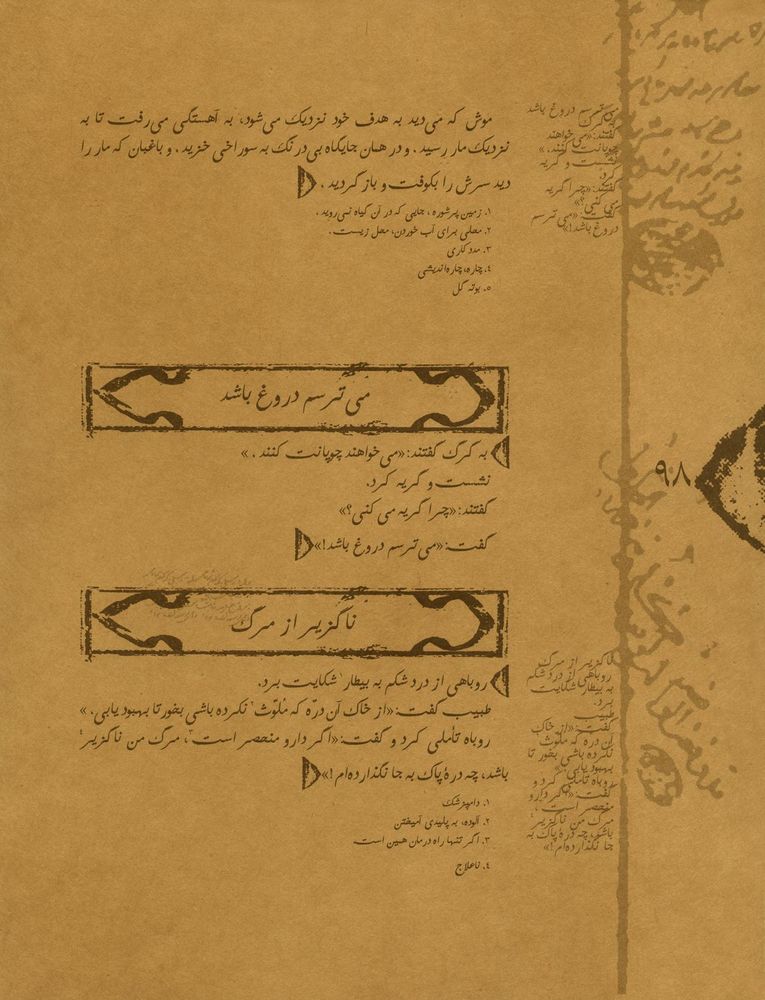 موش که می‌دید به هدف خود نزدیک می‌شود، به آهستگی می‌رفت تا به
نزدیک مار رسید. و در همان جایگاه بی‌درنگ به سوراخی خزید. و باغبان که مار را
دید سرش را بکوفت و باز گردید.
۱. زمین پرشوره، جایی که در آن گیاه نمی‌روید.
۲. محلی برای آب خوردن، محل زیست.
۳. مددکاری
۴. چاره، چاره‌اندیشی
۵. بوته گل
می‌ترسم دروغ باشد
به گرگ گفتند: «می‌خواهند چوپانت کنند.»
نشست و گریه کرد.
گفتند: «چرا گریه می‌کنی؟»
گفت: «می‌ترسم دروغ باشد!»
ناگزیر از مرگ
روباهی از درد شکم به بیطار۱ شکایت برد.
طبیب گفت: «از خاک آن درّه که ملوّث۲ نکرده باشی بخور تا بهبود یابی.»
روباه تأملی کرد و گفت: «اگر دارو منحصر است۳، مرگ من ناگزیر۴
باشد، چه درهٔ پاک به جا نگذارده‌ام!»
۱. دامپزشک
۲. آلوده، به پلیدی آمیختن
۳. اگر تنها راه درمان همین است
۴. ناعلاج
می‌ترسم دروغ باشد
به گرگ
گفتند: «می‌خواهند
چوپانت کنند.»
نشست و گریه
کرد.
گفتند: «چرا گریه
می‌کنی؟»
گفت: «می‌ترسم
دروغ باشد!»
۹۸
ناگزیر از مرگ
روباهی از درد شکم
به بیطار شکایت
برد.
طبیب
گفت: «از خاک
آن دره که ملوّث
نکرده باشی بخور تا
بهبود یابی.»
روباه تأملی کرد و
گفت: «اگر دارو
منحصر است،
مرگ من ناگزیر
باشد، چه درهٔ پاک به
جا نگذارده‌ام!»